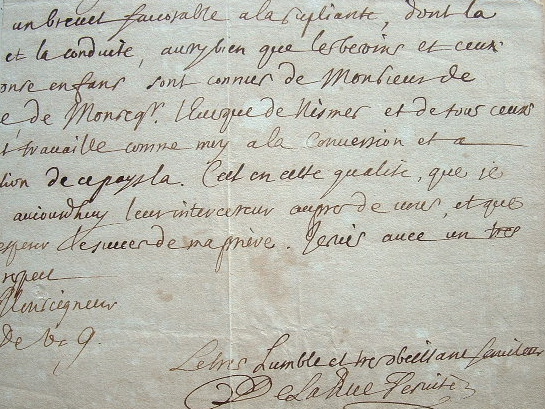 un brevet favorable a la supliante, dont la
et la conduite, aussy bien que les besoins et ceux
onse enfans sont connus de Monsieur de
e, de Monseigr. l'Evesque de Nismes et de tous ceux
t travaille comme moy a la conversion et a
tion de ce pays la. C'est en cette qualité, que je
aujourdhuy leur intercesseur aupres de vous, et que
esperer le succes de ma priere. Je suis avec un tres
respect
Monseigneur
De V. G.
Le tres humble et tres obeissant serviteur
De La Rue Jesuite